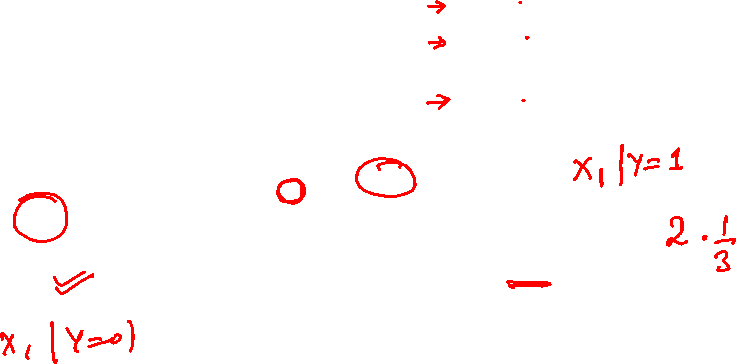 → .
→ .
→ .
x₁ | Y = 1
2 · 1/3
x₁ | Y = 0)